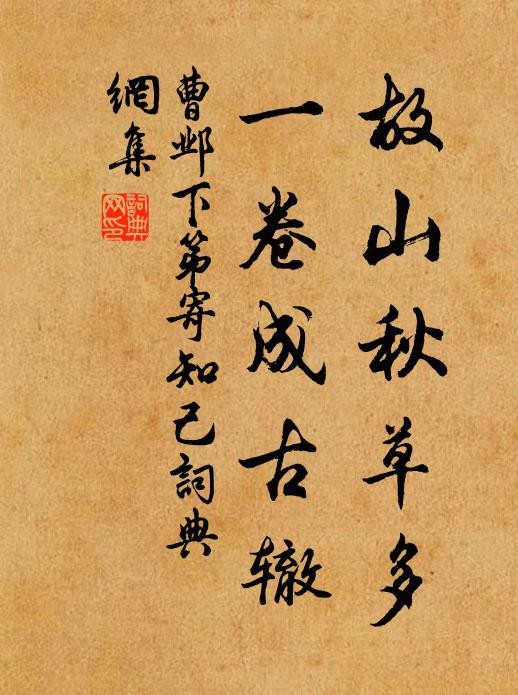 故山秋草多
一卷成古辙
曹邺下第寄知己詞典
網集
詞典
网印